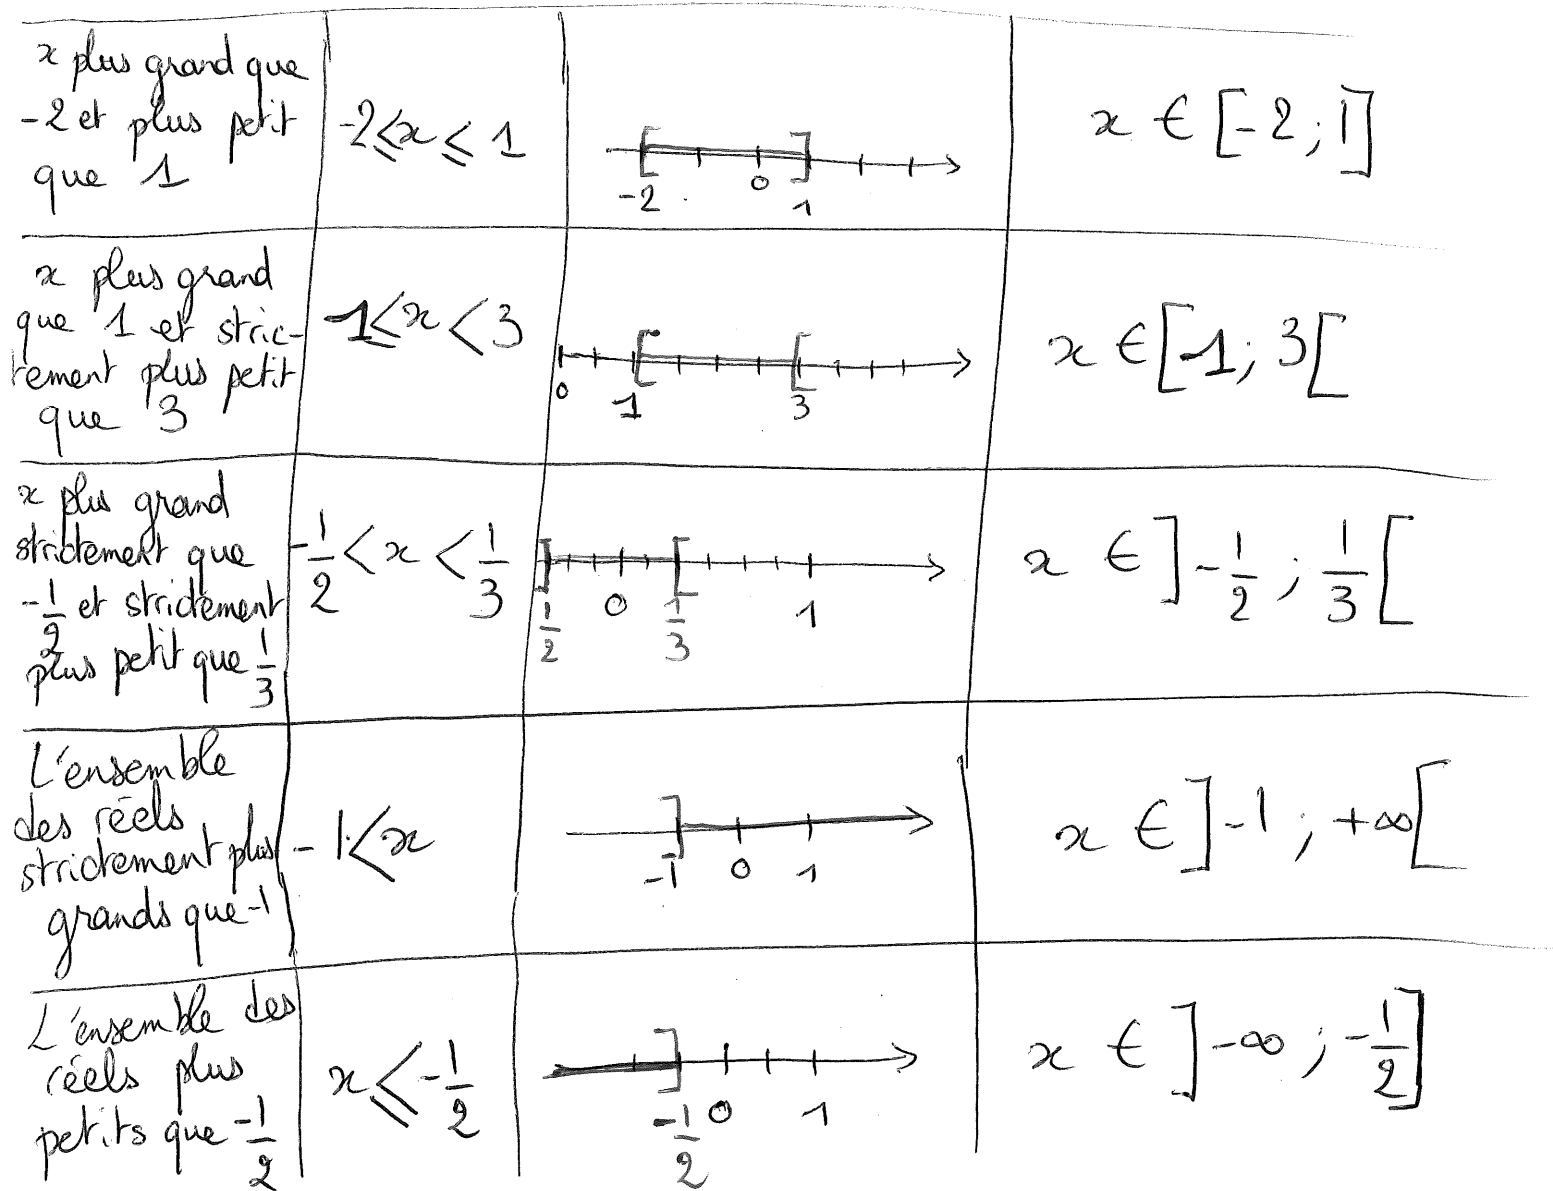 x plus grand que
-2 et plus petit
que 1
-2 ≤ x ≤ 1
-2 0 1
x ∈ [-2 ; 1]
x plus grand
que 1 et stric-
tement plus petit
que 3
-1 ≤ x < 3
0 1 3
x ∈ [-1 ; 3[
x plus grand
strictement que
-1/2 et strictement
plus petit que 1/3
-1/2 < x < 1/3
1/2 0 1/3 1
x ∈ ]-1/2 ; 1/3[
L'ensemble
des réels
strictement plus
grands que -1
-1 < x
-1 0 1
x ∈ ]-1 ; +∞[
L'ensemble des
réels plus
petits que -1/2
x ≤ -1/2
-1/2 0 1
x ∈ ]-∞ ; -1/2]